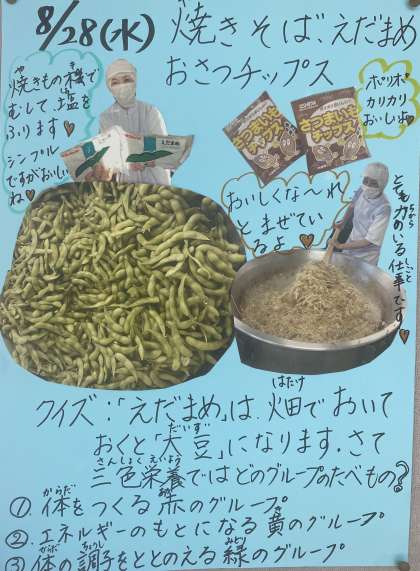 8/28(水) 焼きそば、えだまめ
おさつチップス
焼きもの機で
むして、塩を
ふります♥
シンプル
ですがおいしい
ね♥
えだまめ
さつまいも
チップス
さつまいも
チップス
ポリポリ
カリカリ
おいしいね♥
おいしくな～れ
とまぜてい
るよ♥
とても力のいる仕事です♥
クイズ:「えだまめ」は、畑でおいて
おくと「大豆」になります。さて
三色栄養ではどのグループのたべもの?
①.体をつくる赤のグループ
②.エネルギーのもとになる黄のグループ
③.体の調子をととのえる緑のグループ